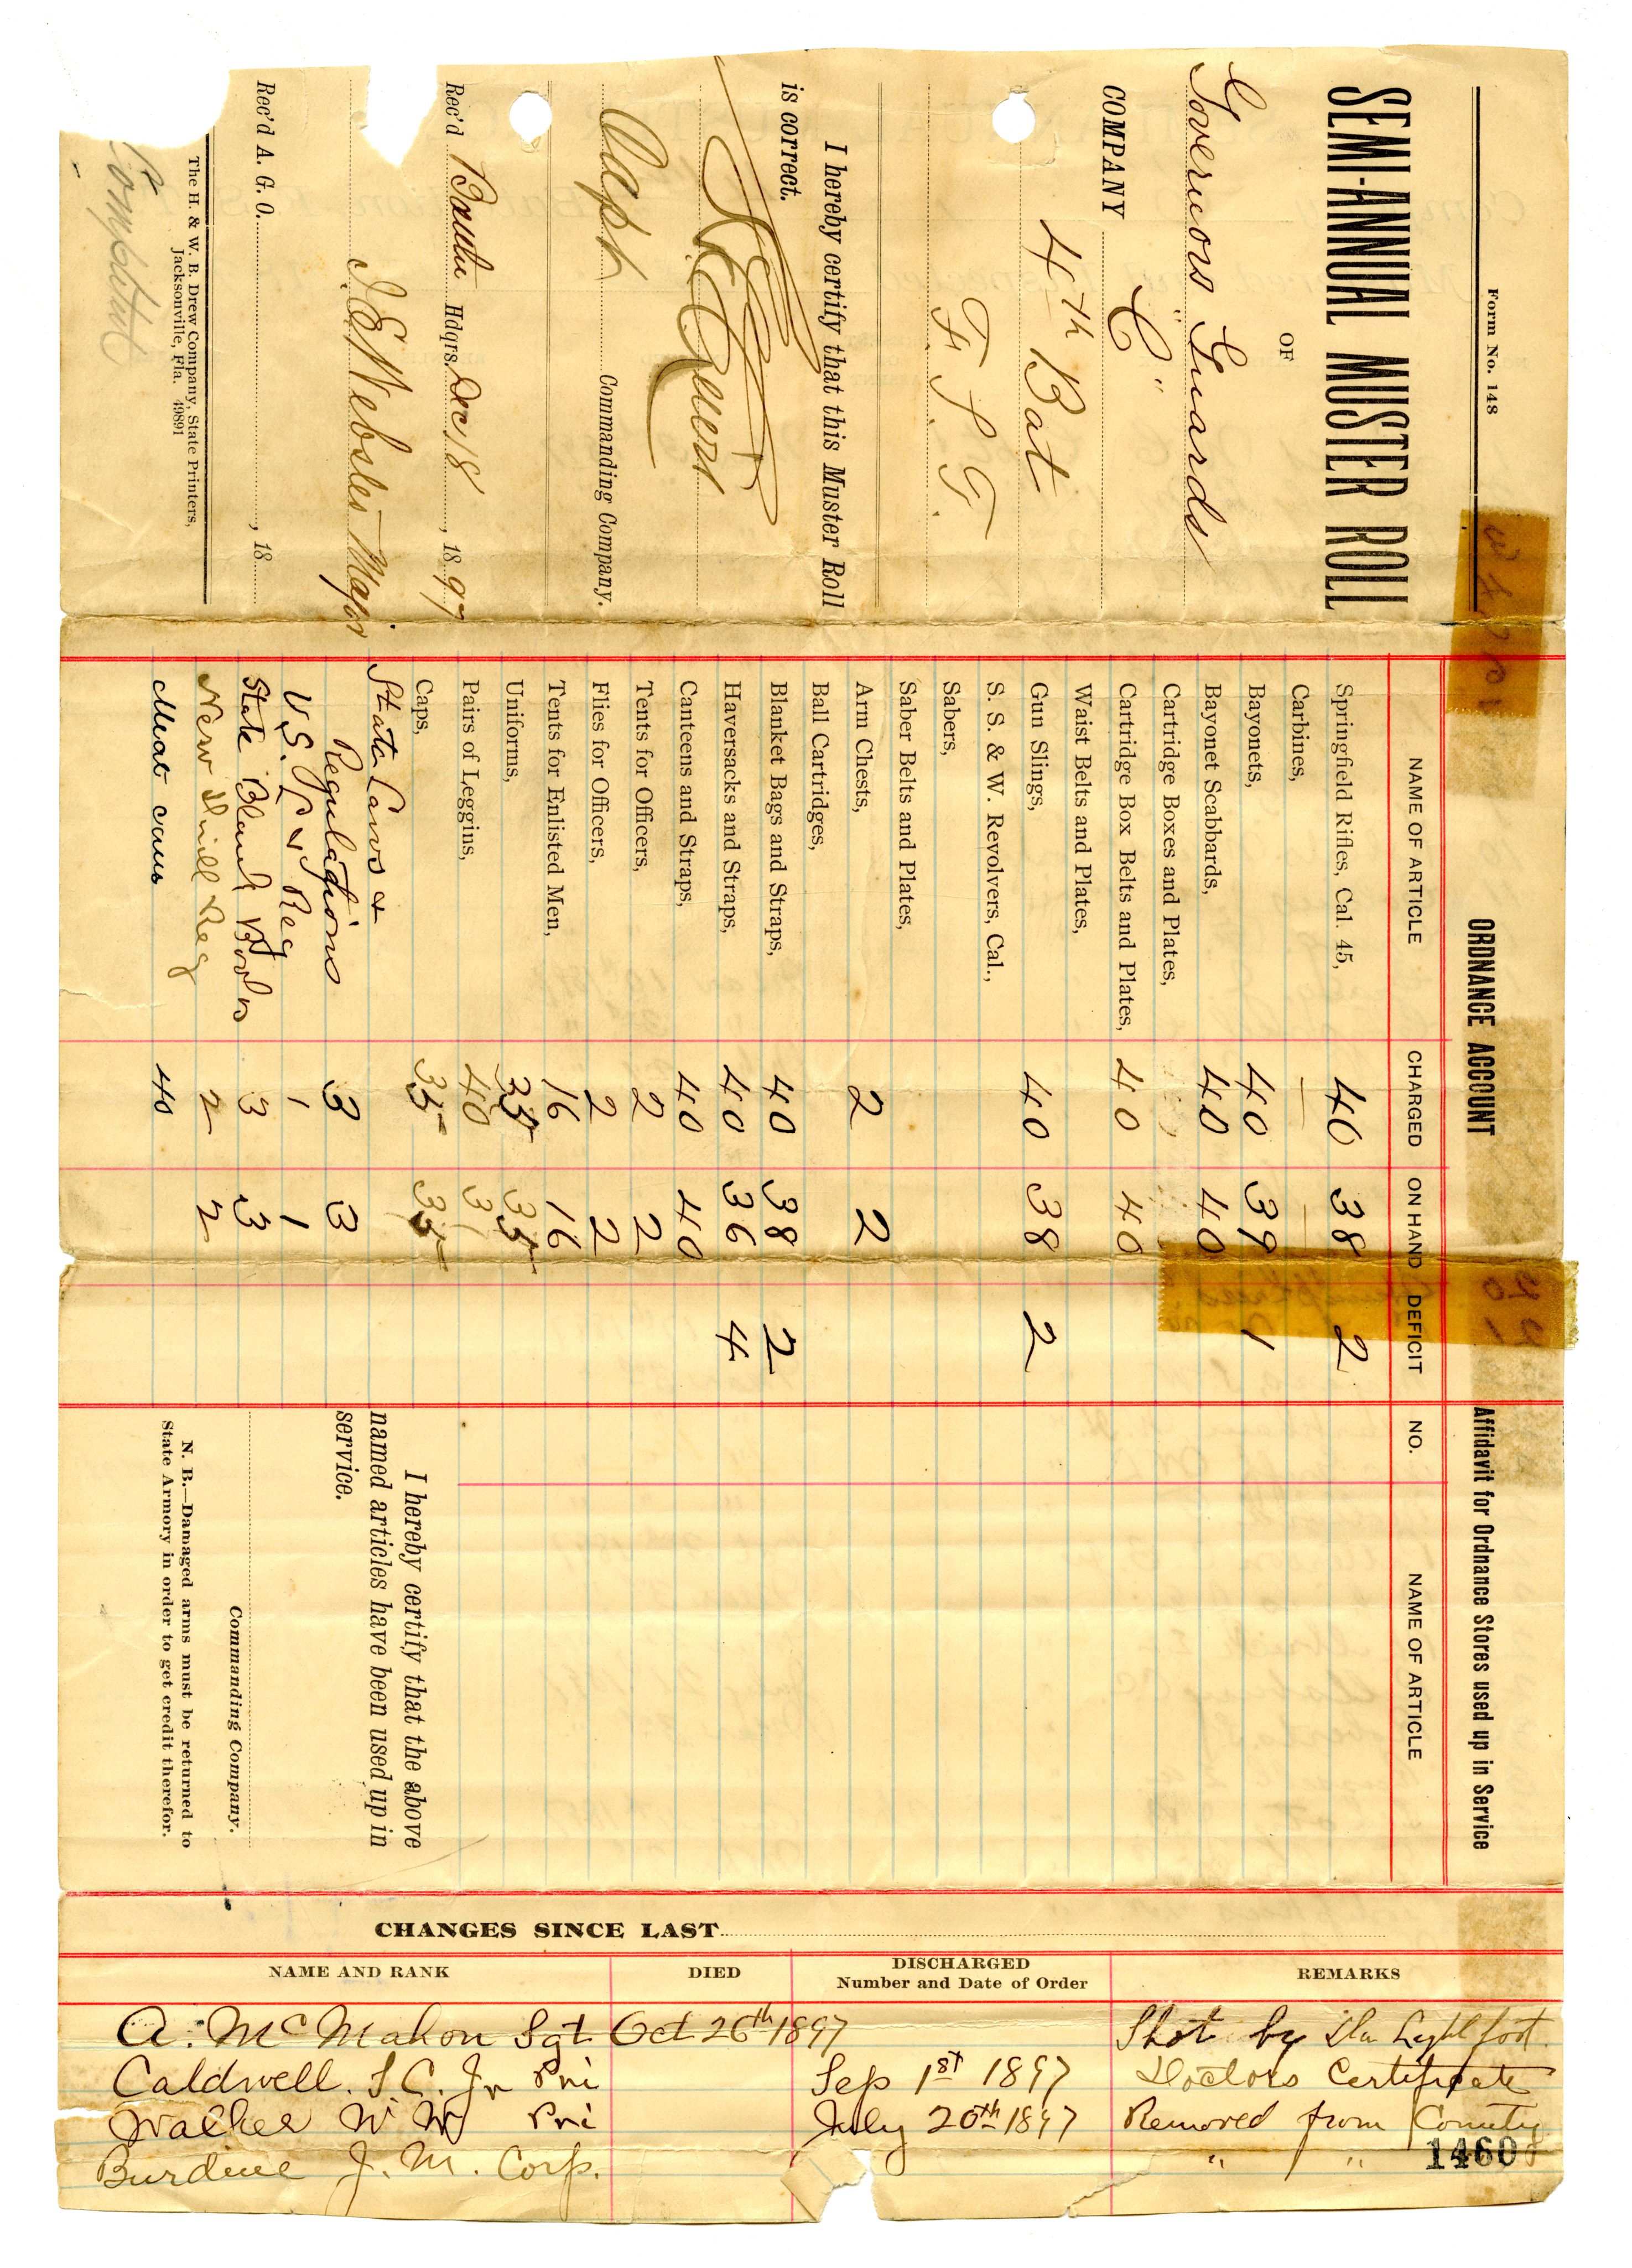 Form No. 148
SEMI-ANNUAL MUSTER ROLL
OF
Governors Guards
COMPANY "C"
4th Bat
F. S. T.
I hereby certify that this Muster Roll
is correct.
Capt Commanding Company.
Rec'd Battn Hdqrs. Dec 18, 1897
J. E. Webster Major
Rec'd A. G. O. , 18
The H. & W. B. Drew Company, State Printers,
Jacksonville, Fla. 49891
ORDNANCE ACCOUNT
NAME OF ARTICLE CHARGED ON HAND DEFICIT
Springfield Rifles, Cal. 45, 40 38 2
Carbines, — —
Bayonets, 40 39 1
Bayonet Scabbards, 40 40
Cartridge Boxes and Plates,
Cartridge Box Belts and Plates, 40 40
Waist Belts and Plates,
Gun Slings, 40 38 2
S. S. & W. Revolvers, Cal.,
Sabers,
Saber Belts and Plates,
Arm Chests, 2 2
Ball Cartridges,
Blanket Bags and Straps, 40 38 2
Haversacks and Straps, 40 36 4
Canteens and Straps, 40 40
Tents for Officers, 2 2
Flies for Officers, 2 2
Tents for Enlisted Men, 16 16
Uniforms, 35 35
Pairs of Leggins, 40 31
Caps, 35 35
State Laws &
Regulations 3 3
U.S. & Reg 1 1
State Blank Books 3 3
New Drill Reg 2 2
Meat cans 40
Affidavit for Ordnance Stores used up in Service
NO. NAME OF ARTICLE
I hereby certify that the above
named articles have been used up in
service.
Commanding Company.
N. B.—Damaged arms must be returned to
State Armory in order to get credit therefor.
CHANGES SINCE LAST
NAME AND RANK DIED DISCHARGED Number and Date of Order REMARKS
A. McMahon Sgt Oct 26th 1897 Shot by Lightfoot.
Caldwell. S. C. Jr Pri Sep 1st 1897 Doctors Certificate
Walker W. W Pri July 20th 1897 Removed from County
Burdine J. M. Corp. " "
1460